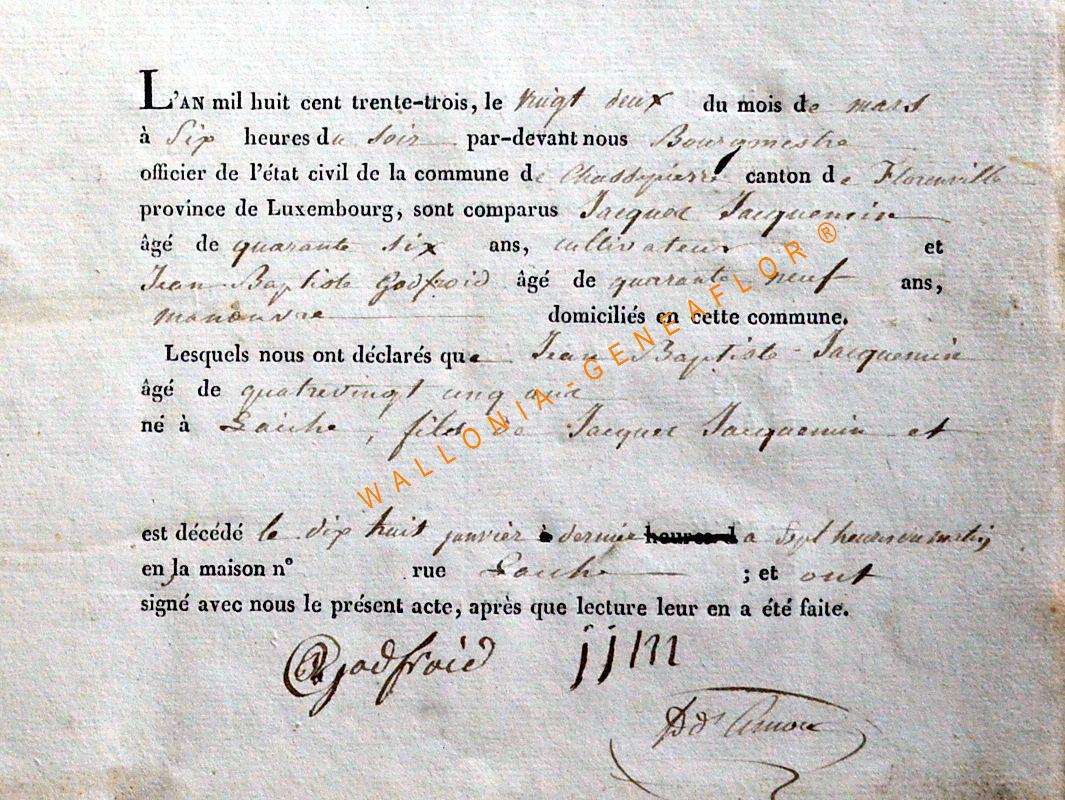 L'AN mil huit cent trente-trois, le vingt deux du mois de mars
à Six heures du soir par-devant nous Bourgmestre
officier de l'état civil de la commune de Chassepierre canton de Florenville
province de Luxembourg, sont comparus Jacques Jacquemin
âgé de quarante six ans, cultivateur et
Jean Baptiste Godfroid âgé de quarante neuf ans,
manœuvre domiciliés en cette commune.
Lesquels nous ont déclarés que Jean Baptiste Jacquemin
âgé de quatrevingt cinq ans
né à Laiche, fils de Jacques Jacquemin et
est décédé le dix huit janvier dernier a sept heures du matin
en la maison n° rue Laiche ; et ont
signé avec nous le présent acte, après que lecture leur en a été faite.
godfroid jjm
WALLONIA-GENEAFLOR ®